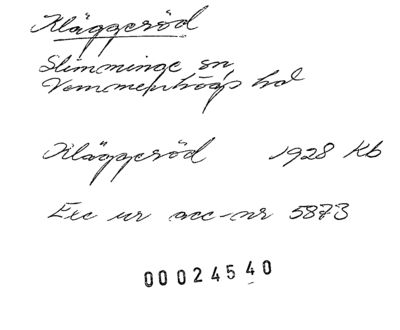 Kläggeröd
Slimminge sn,
Vemmenhögs hd
Kläggeröd 1928 Kb
Exc ur acc-nr 5873
00024540